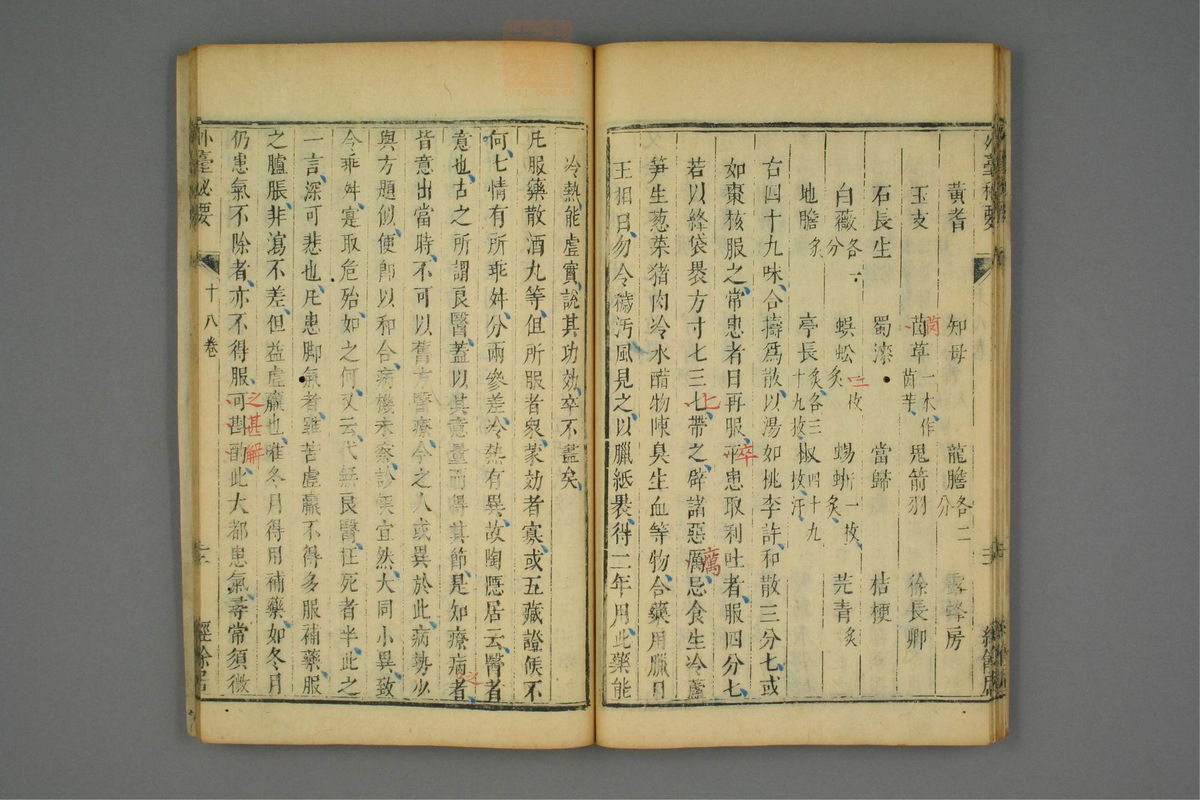 黃耆　知母　龍膽各二分　露蜂房
玉支　茵草一本作茵芋　鬼箭羽　徐長卿
石長生　蜀漆　當歸　桔梗
白薇各一分　蜈蚣炙二枚　蜴蜥一枚炙　芫青炙
地膽炙　亭長炙各三十九枚　椒四十九枚汗
右四十九味合擣爲散以湯如桃李許和散三分七或
如棗核服之常患者日再服卒患取利吐者服四分七
若以絳袋褁方寸七三七帶之辟諸惡厲忌食生冷蘆
笋生葱菜猪肉冷水醋物陳臭生血等物合藥用臘日
王相日勿令穢汚風見之以臘紙褁得二年用此藥能
冷熱能虛實說其功効卒不盡矣
凡服藥散酒丸等但所服者衆蒙効者寡或五藏證候不
何七情有所乖舛分兩參差冷熱有異故陶隱居云醫者
意也古之所謂良醫蓋以其意量而得其節是知療病者
皆意出當時不可以舊方醫療今之人或異於此病勢少
與方題似使卽以和合病機未察診候宜然大同小異致
令乖舛寔取危殆如之何又云代無良醫枉死者半此之
一言深可悲也凡患脚氣者雖苦虛羸不得多服補藥服
之臚脹非瀉不差但益虛羸也唯冬月得用補藥如冬月
仍患氣不除者亦不得服可斟酌此大都患氣尋常須微
外臺秘要　十八卷　經餘居